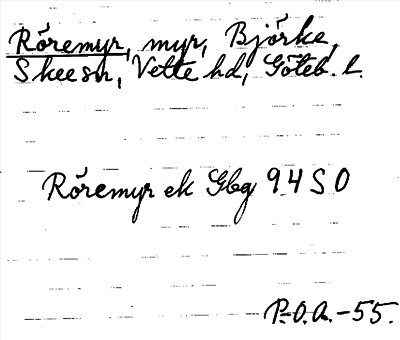 Röremyr, myr, Björke,
Skee sn, Vette hd, Göteb. l.
Röremyr ek Gbg 94 S O
P.O.A.-55.